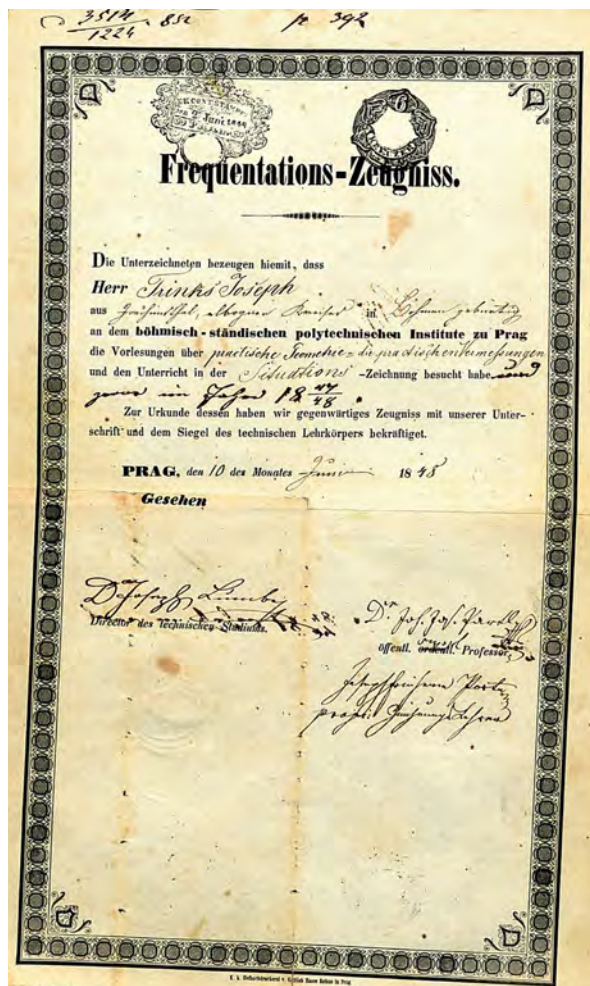 3514 852 pr 392
1224
6
Frequentations-Zeugniss.
Die Unterzeichneten bezeugen hiemit, dass
Herr Trinks Joseph
aus Kreises in Böhmen gebürtig
an dem böhmisch-ständischen polytechnischen Institute zu Prag
die Vorlesungen über practische Geometrie die practischen Vermessungen
und den Unterricht in der Situations-Zeichnung besucht habe und
zwar im Jahre 18 47/48.
Zur Urkunde dessen haben wir gegenwärtiges Zeugniss mit unserer Unter-
schrift und dem Siegel des technischen Lehrkörpers bekräftiget.
PRAG, den 10 des Monates Juni 1848
Gesehen
Dr Joseph Lumbe
Director des Technischen Studiums.
Dr. Joh.
öffentl. ordentl. Professor
Joseph